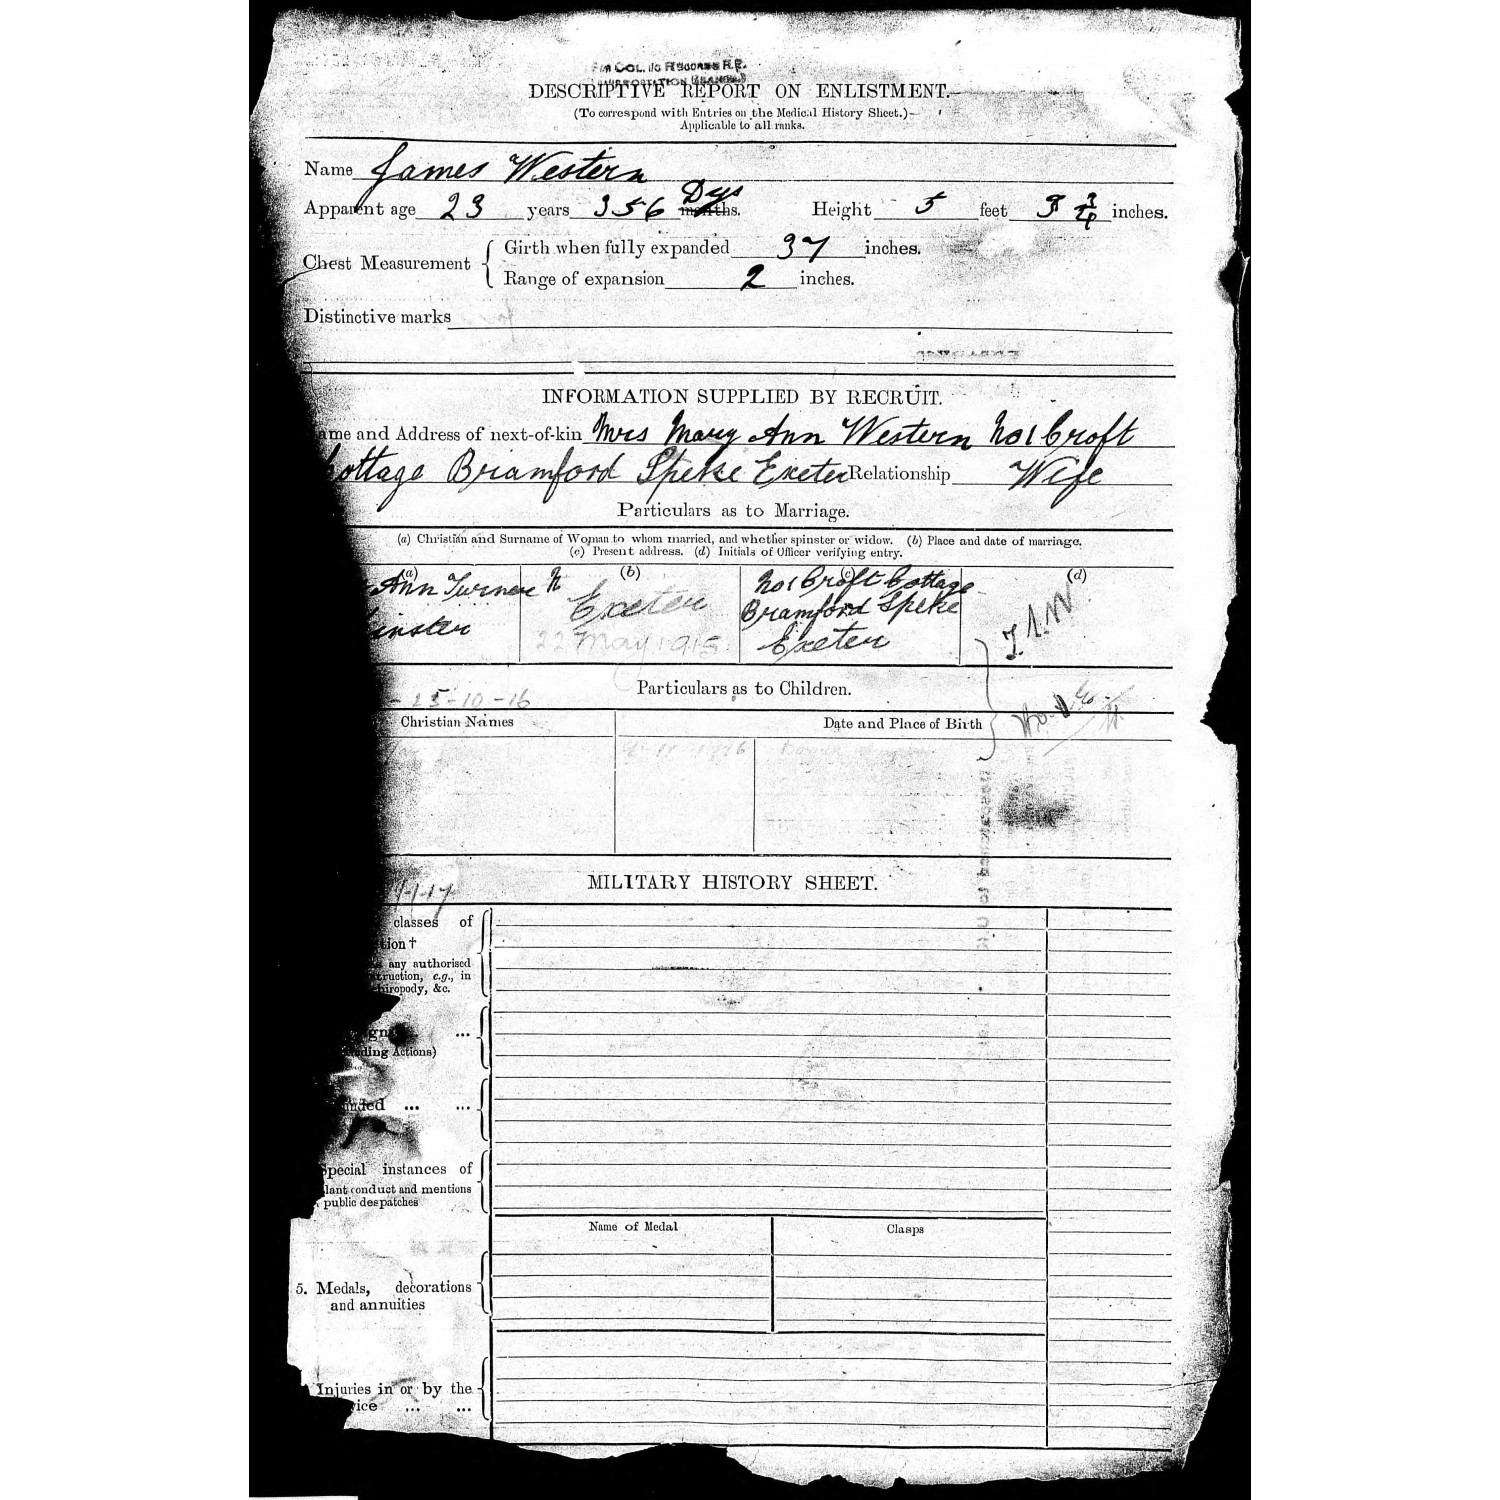 For COL. i/c RECORDS R.E.
(TRANSPORTATION BRANCH)
DESCRIPTIVE REPORT ON ENLISTMENT.
(To correspond with Entries on the Medical History Sheet.)
Applicable to all ranks.
Name James Western
Apparent age 23 years 356 Dys months. Height 5 feet 3 3/4 inches.
Chest Measurement { Girth when fully expanded 37 inches.
Range of expansion 2 inches.
Distinctive marks
INFORMATION SUPPLIED BY RECRUIT.
ame and Address of next-of-kin Mrs Mary Ann Western No 1 Croft
Cottage Bramford Speke Exeter Relationship Wife
Particulars as to Marriage.
(a) Christian and Surname of Woman to whom married, and whether spinster or widow. (b) Place and date of marriage.
(c) Present address. (d) Initials of Officer verifying entry.
(a) (b) (c) (d)
Ann Turner Exeter No 1 Croft Cottage
Bramford Speke
inster 22 May 1915 Exeter
Particulars as to Children.
25-10-16
Christian Names Date and Place of Birth
MILITARY HISTORY SHEET.
1-17
classes of
tion †
any authorised
ruction, e.g., in
hiropody, &c.
aign ...
ding Actions)
unded ... ...
Special instances of
lant conduct and mentions
public despatches
Name of Medal Clasps
5. Medals, decorations
and annuities
Injuries in or by the
vice ... ...